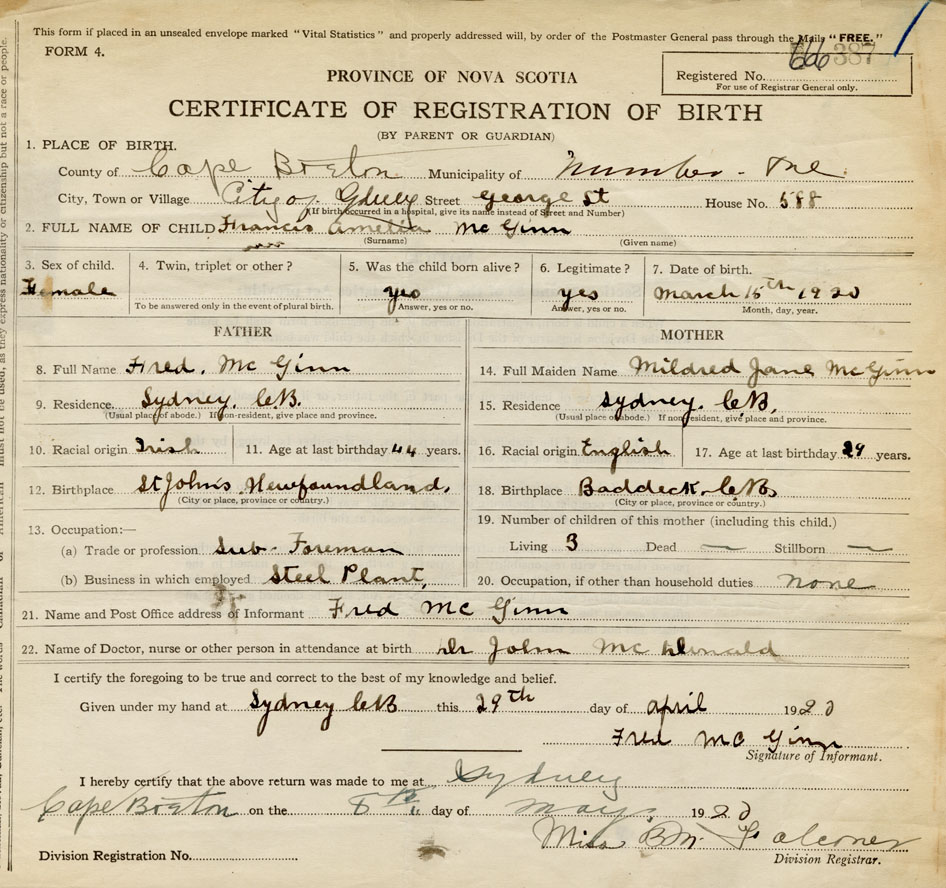 This form if placed in an unsealed envelope marked "Vital Statistics" and properly addressed will, by order of the Postmaster General pass through the Mails "FREE."
FORM 4.
66 387
PROVINCE OF NOVA SCOTIA
Registered No.
For use of Registrar General only.
CERTIFICATE OF REGISTRATION OF BIRTH
(BY PARENT OR GUARDIAN)
1. PLACE OF BIRTH.
County of Cape Breton Municipality of Number - One
City, Town or Village City of Sydney Street George St House No. 588
(If birth occurred in a hospital, give its name instead of Street and Number)
2. FULL NAME OF CHILD Francis Amelia Mc Ginn
(Surname) (Given name)
3. Sex of child. 4. Twin, triplet or other? 5. Was the child born alive? 6. Legitimate? 7. Date of birth.
Female yes yes March 15th 1920
To be answered only in the event of plural birth. Answer, yes or no. Answer, yes or no. Month, day, year.
FATHER MOTHER
8. Full Name Fred. Mc Ginn 14. Full Maiden Name Mildred Jane McGinn
9. Residence. Sydney. C.B. 15. Residence Sydney. C.B.
(Usual place of abode.) If non-resident, give place and province. (Usual place of abode.) If non resident, give place and province.
10. Racial origin Irish 11. Age at last birthday 44 years. 16. Racial origin English 17. Age at last birthday 29 years.
12. Birthplace St Johns, Newfoundland. 18. Birthplace Baddeck. C.B.
(City or place, province or country.) (City or place, province or country.)
13. Occupation:— 19. Number of children of this mother (including this child.)
(a) Trade or profession Sub-Foreman Living 3 Dead — Stillborn —
(b) Business in which employed Steel Plant, 20. Occupation, if other than household duties none
21. Name and Post Office address of Informant Fred Mc Ginn
22. Name of Doctor, nurse or other person in attendance at birth Dr John Mc Donald
I certify the foregoing to be true and correct to the best of my knowledge and belief.
Given under my hand at Sydney C.B this 29th day of april 1920
Fred Mc Ginn
Signature of Informant.
I hereby certify that the above return was made to me at Sydney
Cape Breton on the 8th day of May 1920
Miss B.M. Falconer
Division Registrar.
Division Registration No.